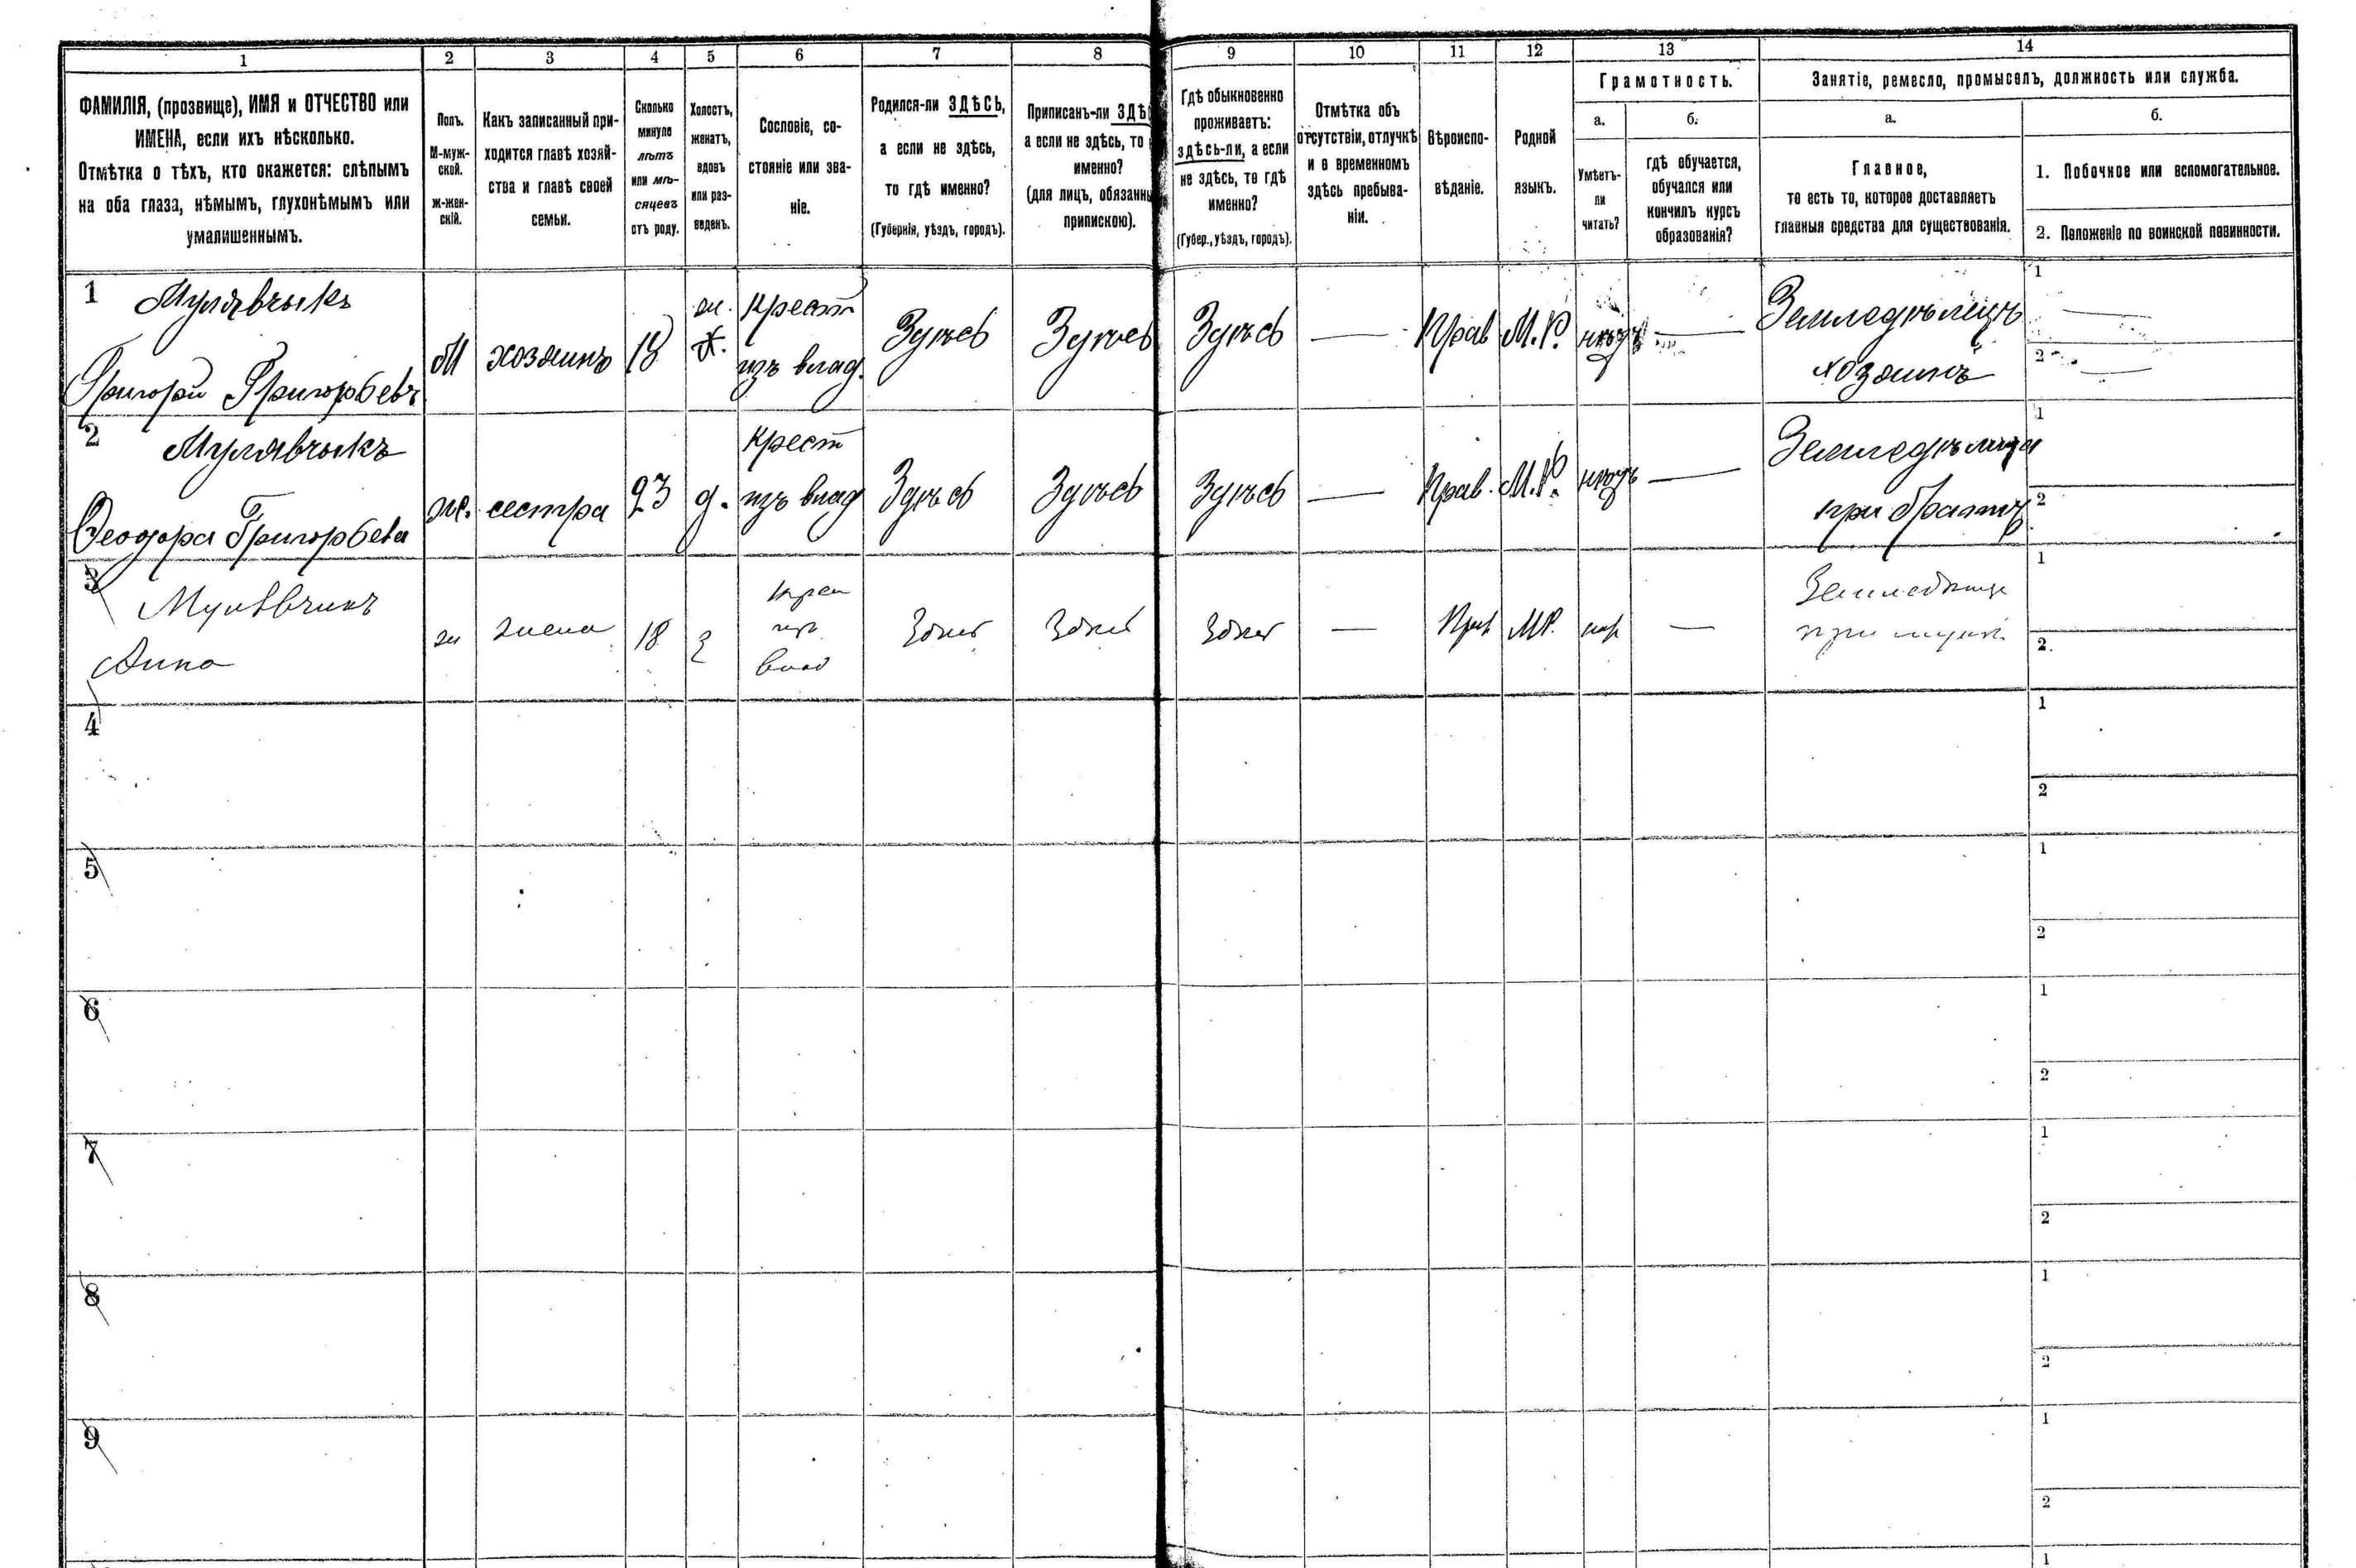 1 2 3 4 5 6 7 8 9 10 11 12 13 14
ФАМИЛІЯ, (прозвище), ИМЯ и ОТЧЕСТВО или
ИМЕНА, если ихъ нѣсколько.
Отмѣтка о тѣхъ, кто окажется: слѣпымъ
на оба глаза, нѣмымъ, глухонѣмымъ или
умалишеннымъ.
Полъ.
М-муж-
ской.
ж-жен-
скій.
Какъ записанный при-
ходится главѣ хозяй-
ства и главѣ своей
семьи.
Сколько
минуло
лѣтъ
или мѣ-
сяцевъ
отъ роду.
Холостъ,
женатъ,
вдовъ
или раз-
веденъ.
Сословіе, со-
стояніе или зва-
ніе.
Родился-ли ЗДѢСЬ,
а если не здѣсь,
то гдѣ именно?
(Губернія, уѣздъ, городъ).
Приписанъ-ли ЗДѢ
а если не здѣсь, то
именно?
(для лицъ, обязанны
припискою).
Гдѣ обыкновенно
проживаетъ:
здѣсь-ли, а если
не здѣсь, то гдѣ
именно?
(Губер., уѣздъ, городъ).
Отмѣтка объ
отсутствіи, отлучкѣ
и о временномъ
здѣсь пребыва-
ніи.
Вѣроиспо-
вѣданіе.
Родной
языкъ.
Грамотность.
а.
Умѣетъ-
ли
читать?
б.
гдѣ обучается,
обучался или
кончилъ курсъ
образованія?
Занятіе, ремесло, промыселъ, должность или служба.
а.
Главное,
то есть то, которое доставляетъ
главныя средства для существованія.
б.
1. Побочное или вспомогательное.
2. Положеніе по воинской повинности.
1 Мулявчыкъ
Григорій Григорьевъ
М хозяинъ 18 ж. х.
Крест
изъ влад.
Здѣсь Здѣсь Здѣсь — Прав М.Р. нѣтъ —
Земледѣлецъ
хозяинъ
1 —
2 —
2 Мулявчыкъ
Феодора Григорьева
же. сестра 23 д.
Крест
изъ влад
Здѣсь Здѣсь Здѣсь — Прав. М.Р. нѣтъ —
Земледѣлица
при братѣ
1
2
3 Мулявчикъ
Анна
ж жена 18 з
крест
изъ
влад
Здѣсь Здѣсь Здѣсь — Прав МР. —
при мужѣ
1
2.
4
1
2
5
1
2
6
1
2
7
1
2
8
1
2
9
1
2
1